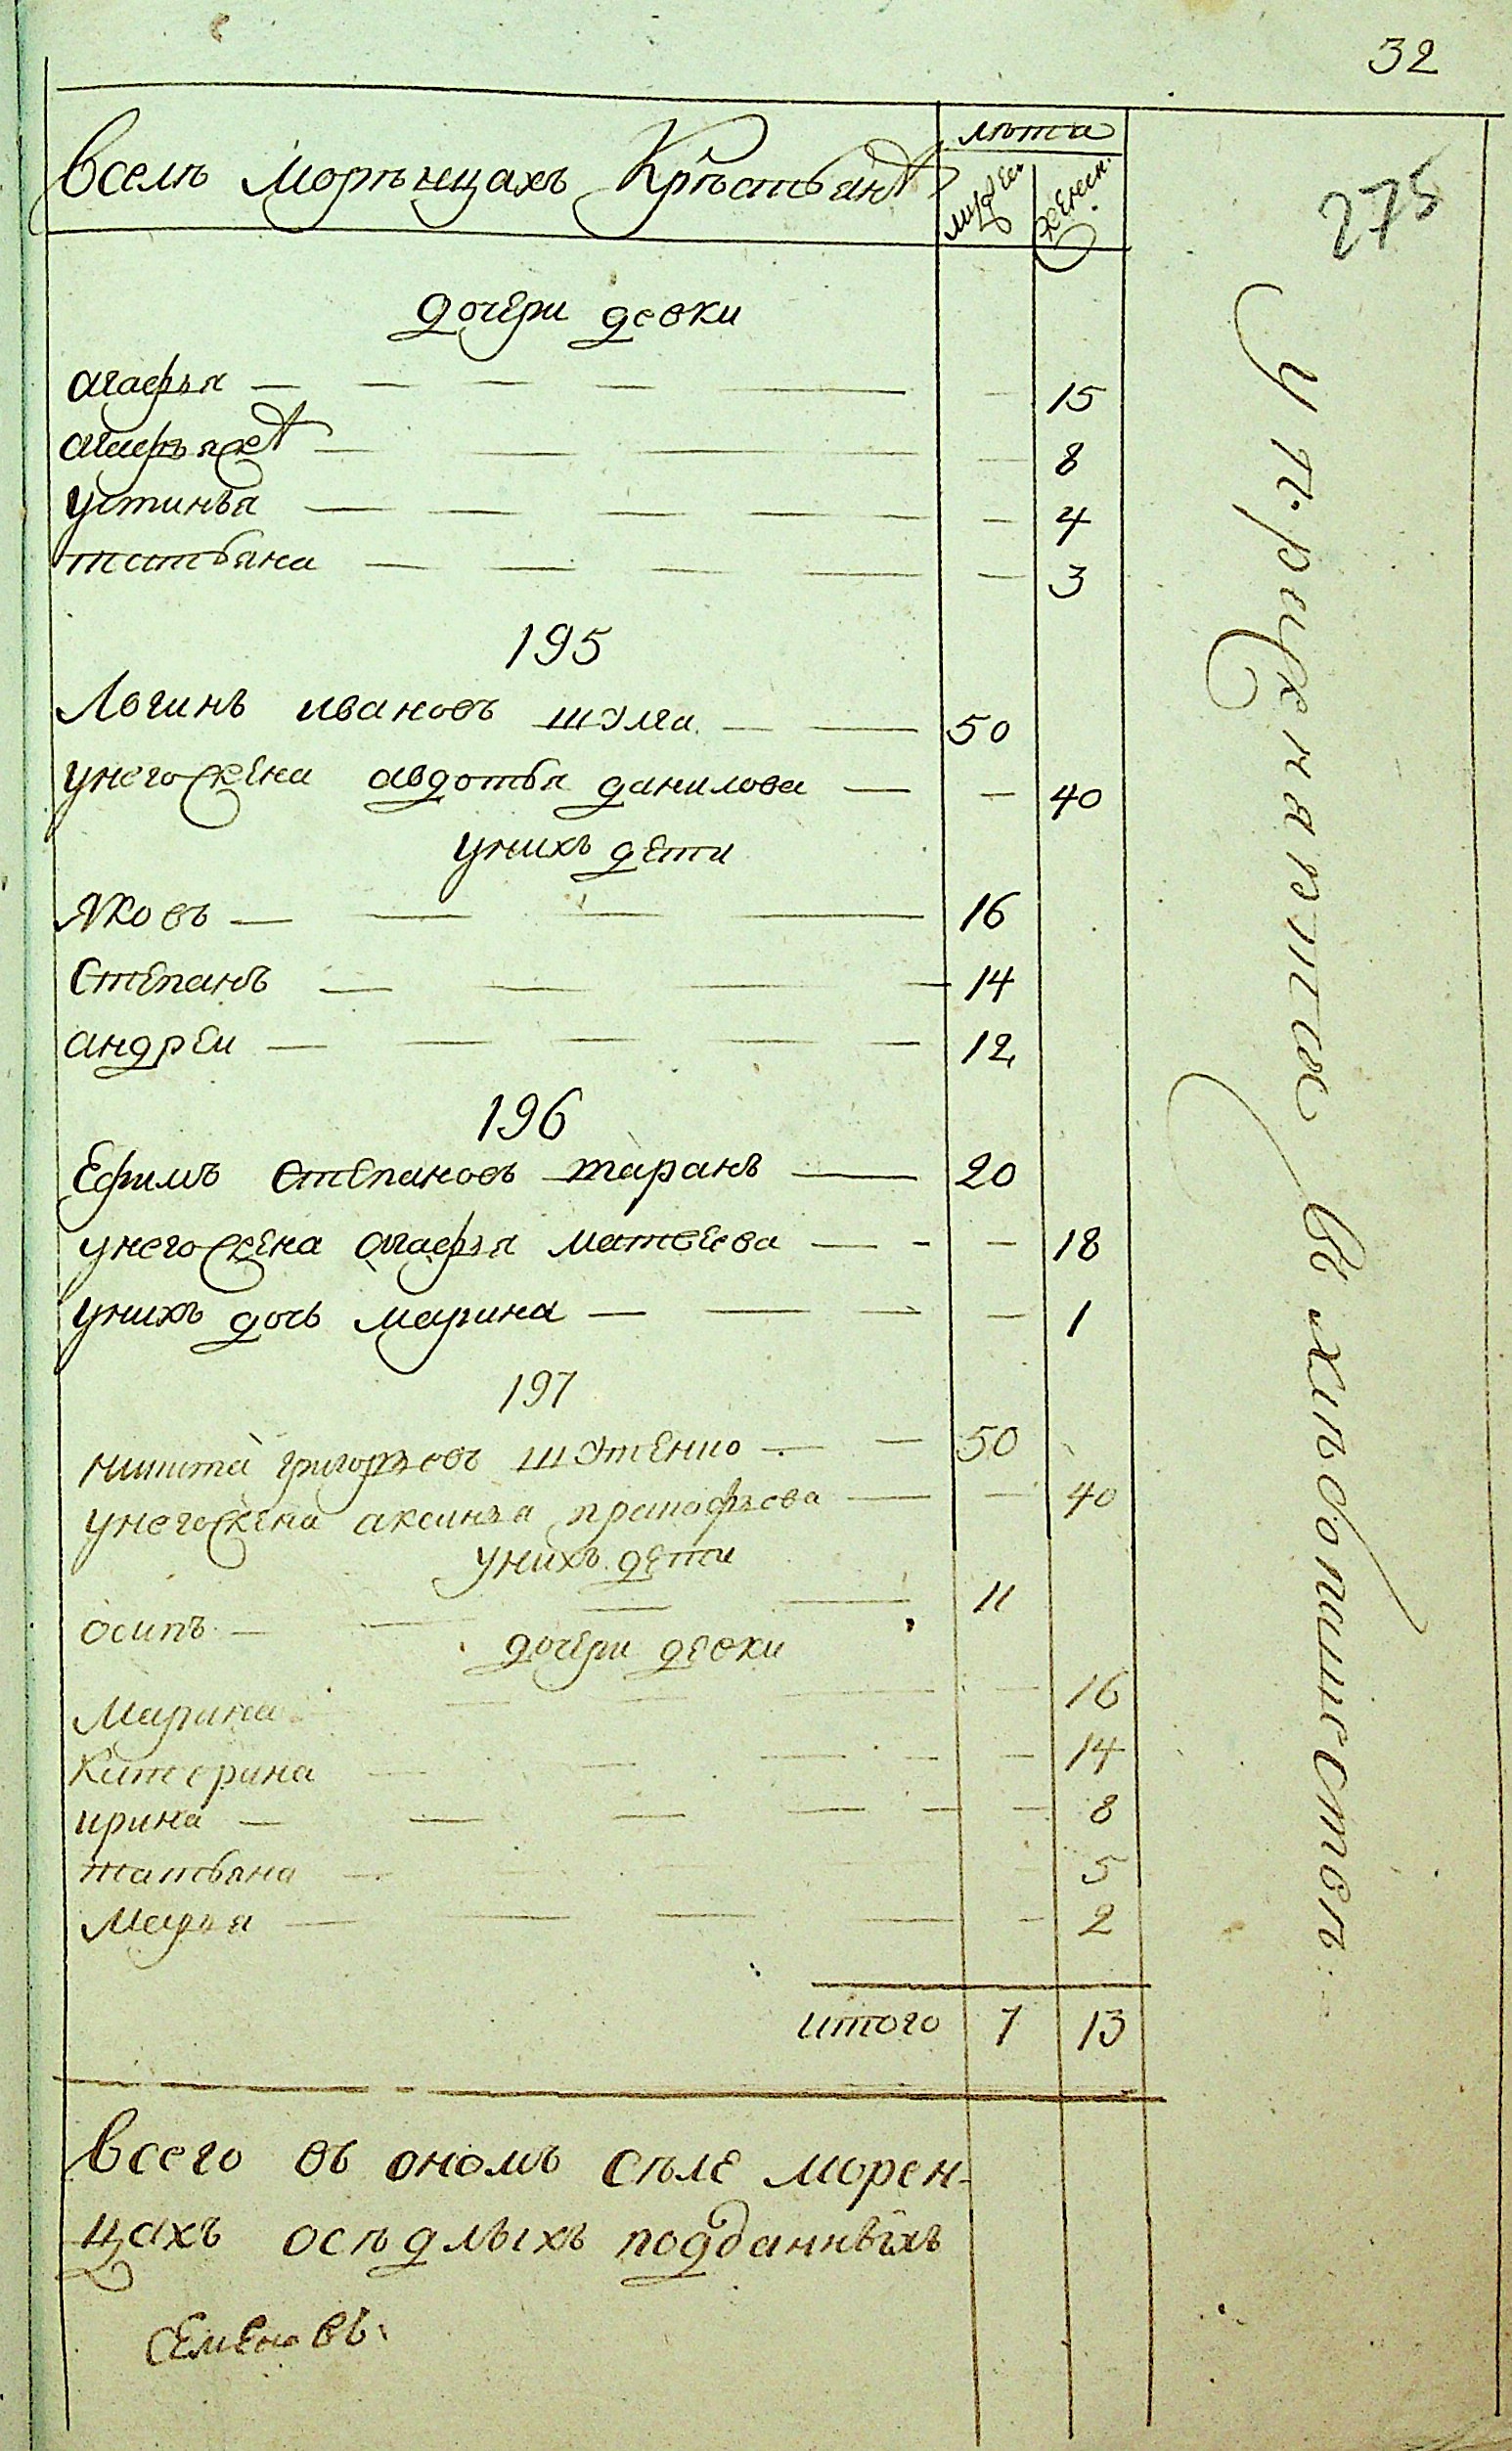 32
275
лѣта
вселѣ морѣнцахъ Крѣстьянъ
мужеи
женск.
дочери девки
агафья — 15
агафья ж — 8
устинья — 4
татьяна — 3
195
Логинъ ивановъ шулга — 50
унего жена авдотья данилова — 40
унихъ дети
яковъ — 16
степанъ — 14
андреи — 12
196
Ефимъ степановъ таранъ — 20
унего жена агафья матвеева — 18
унихъ дочь марина — 1
197
никита григорьевъ — 50
унего жена аксинья прокофьева — 40
унихъ дети
осипъ — 11
дочери девки
марина — 16
катерина — 14
ирина — 8
татьяна — 5
марья — 2
итого 7 13
всего въ ономъ сѣле морен-
цахъ осѣдлыхъ подданныхъ
семеновъ
упражняются в хлѣбопашествѣ